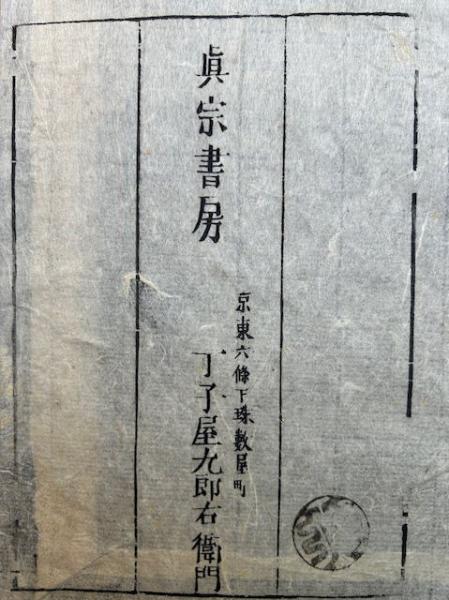 眞宗書房
京東六條下珠數屋町
丁子屋九郎右衛門